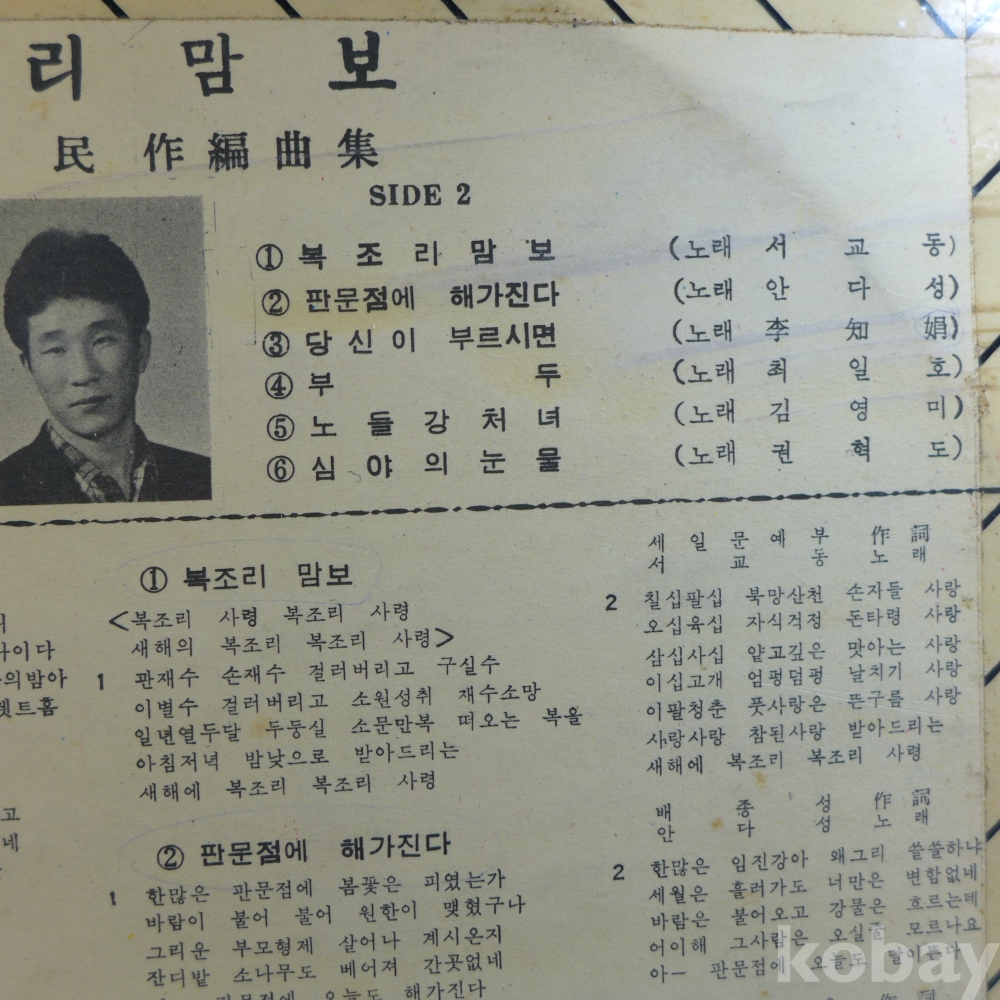 리 맘 보
民 作編曲集
SIDE 2
① 복 조 리 맘 보 (노래 서 교 동)
② 판문점에 해가진다 (노래 안 다 성)
③ 당신이 부르시면 (노래 李 知 娟)
④ 부 두 (노래 최 일 호)
⑤ 노 들 강 처 녀 (노래 김 영 미)
⑥ 심 야 의 눈 물 (노래 권 혁 도)
이다
의밤아
렛트홈
고
네
① 복조리 맘보
세 일 문 예 부 作 詞
서 교 동 노 래
<복조리 사령 복조리 사령
새해의 복조리 복조리 사령>
1 관재수 손재수 걸러버리고 구실수
이별수 걸러버리고 소원성취 재수소망
일년열두달 두둥실 소문만복 떠오는 복을
아침저녁 밤낮으로 받아드리는
새해에 복조리 복조리 사령
2 칠십팔십 북망산천 손자들 사랑
오십육십 자식걱정 돈타령 사랑
삼십사십 얕고깊은 맛아는 사랑
이십고개 엄평덤평 날치기 사랑
이팔청춘 풋사랑은 뜬구름 사랑
사랑사랑 참된사랑 받아드리는
새해에 복조리 복조리 사령
② 판문점에 해가진다
배 종 성 作 詞
안 다 성 노 래
1 한많은 판문점에 봄꽃은 피였는가
바람이 불어 불어 원한이 맺혔구나
그리운 부모형제 살어나 계시온지
잔디밭 소나무도 베어져 간곳없네
판문점에 오늘도 해가진다
2 한많은 임진강아 왜그리 쓸쓸하냐
세월은 흘러가도 너만은 변함없네
바람은 불어오고 강물은 흐르는데
어이해 그사람은 오실줄 모르나요
아— 판문점에 오늘도 달이뜬다
作 詞
kobay